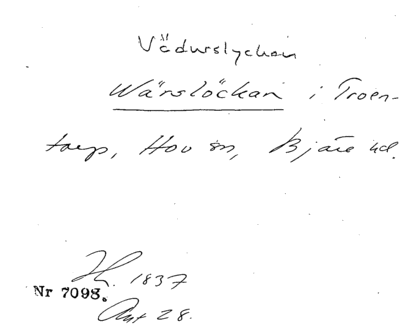 Vädurslyckan
Wärslöckan i Troen-
torp, Hov sn, Bjäre hd.
1837
Nr 7098.
Akt 28.